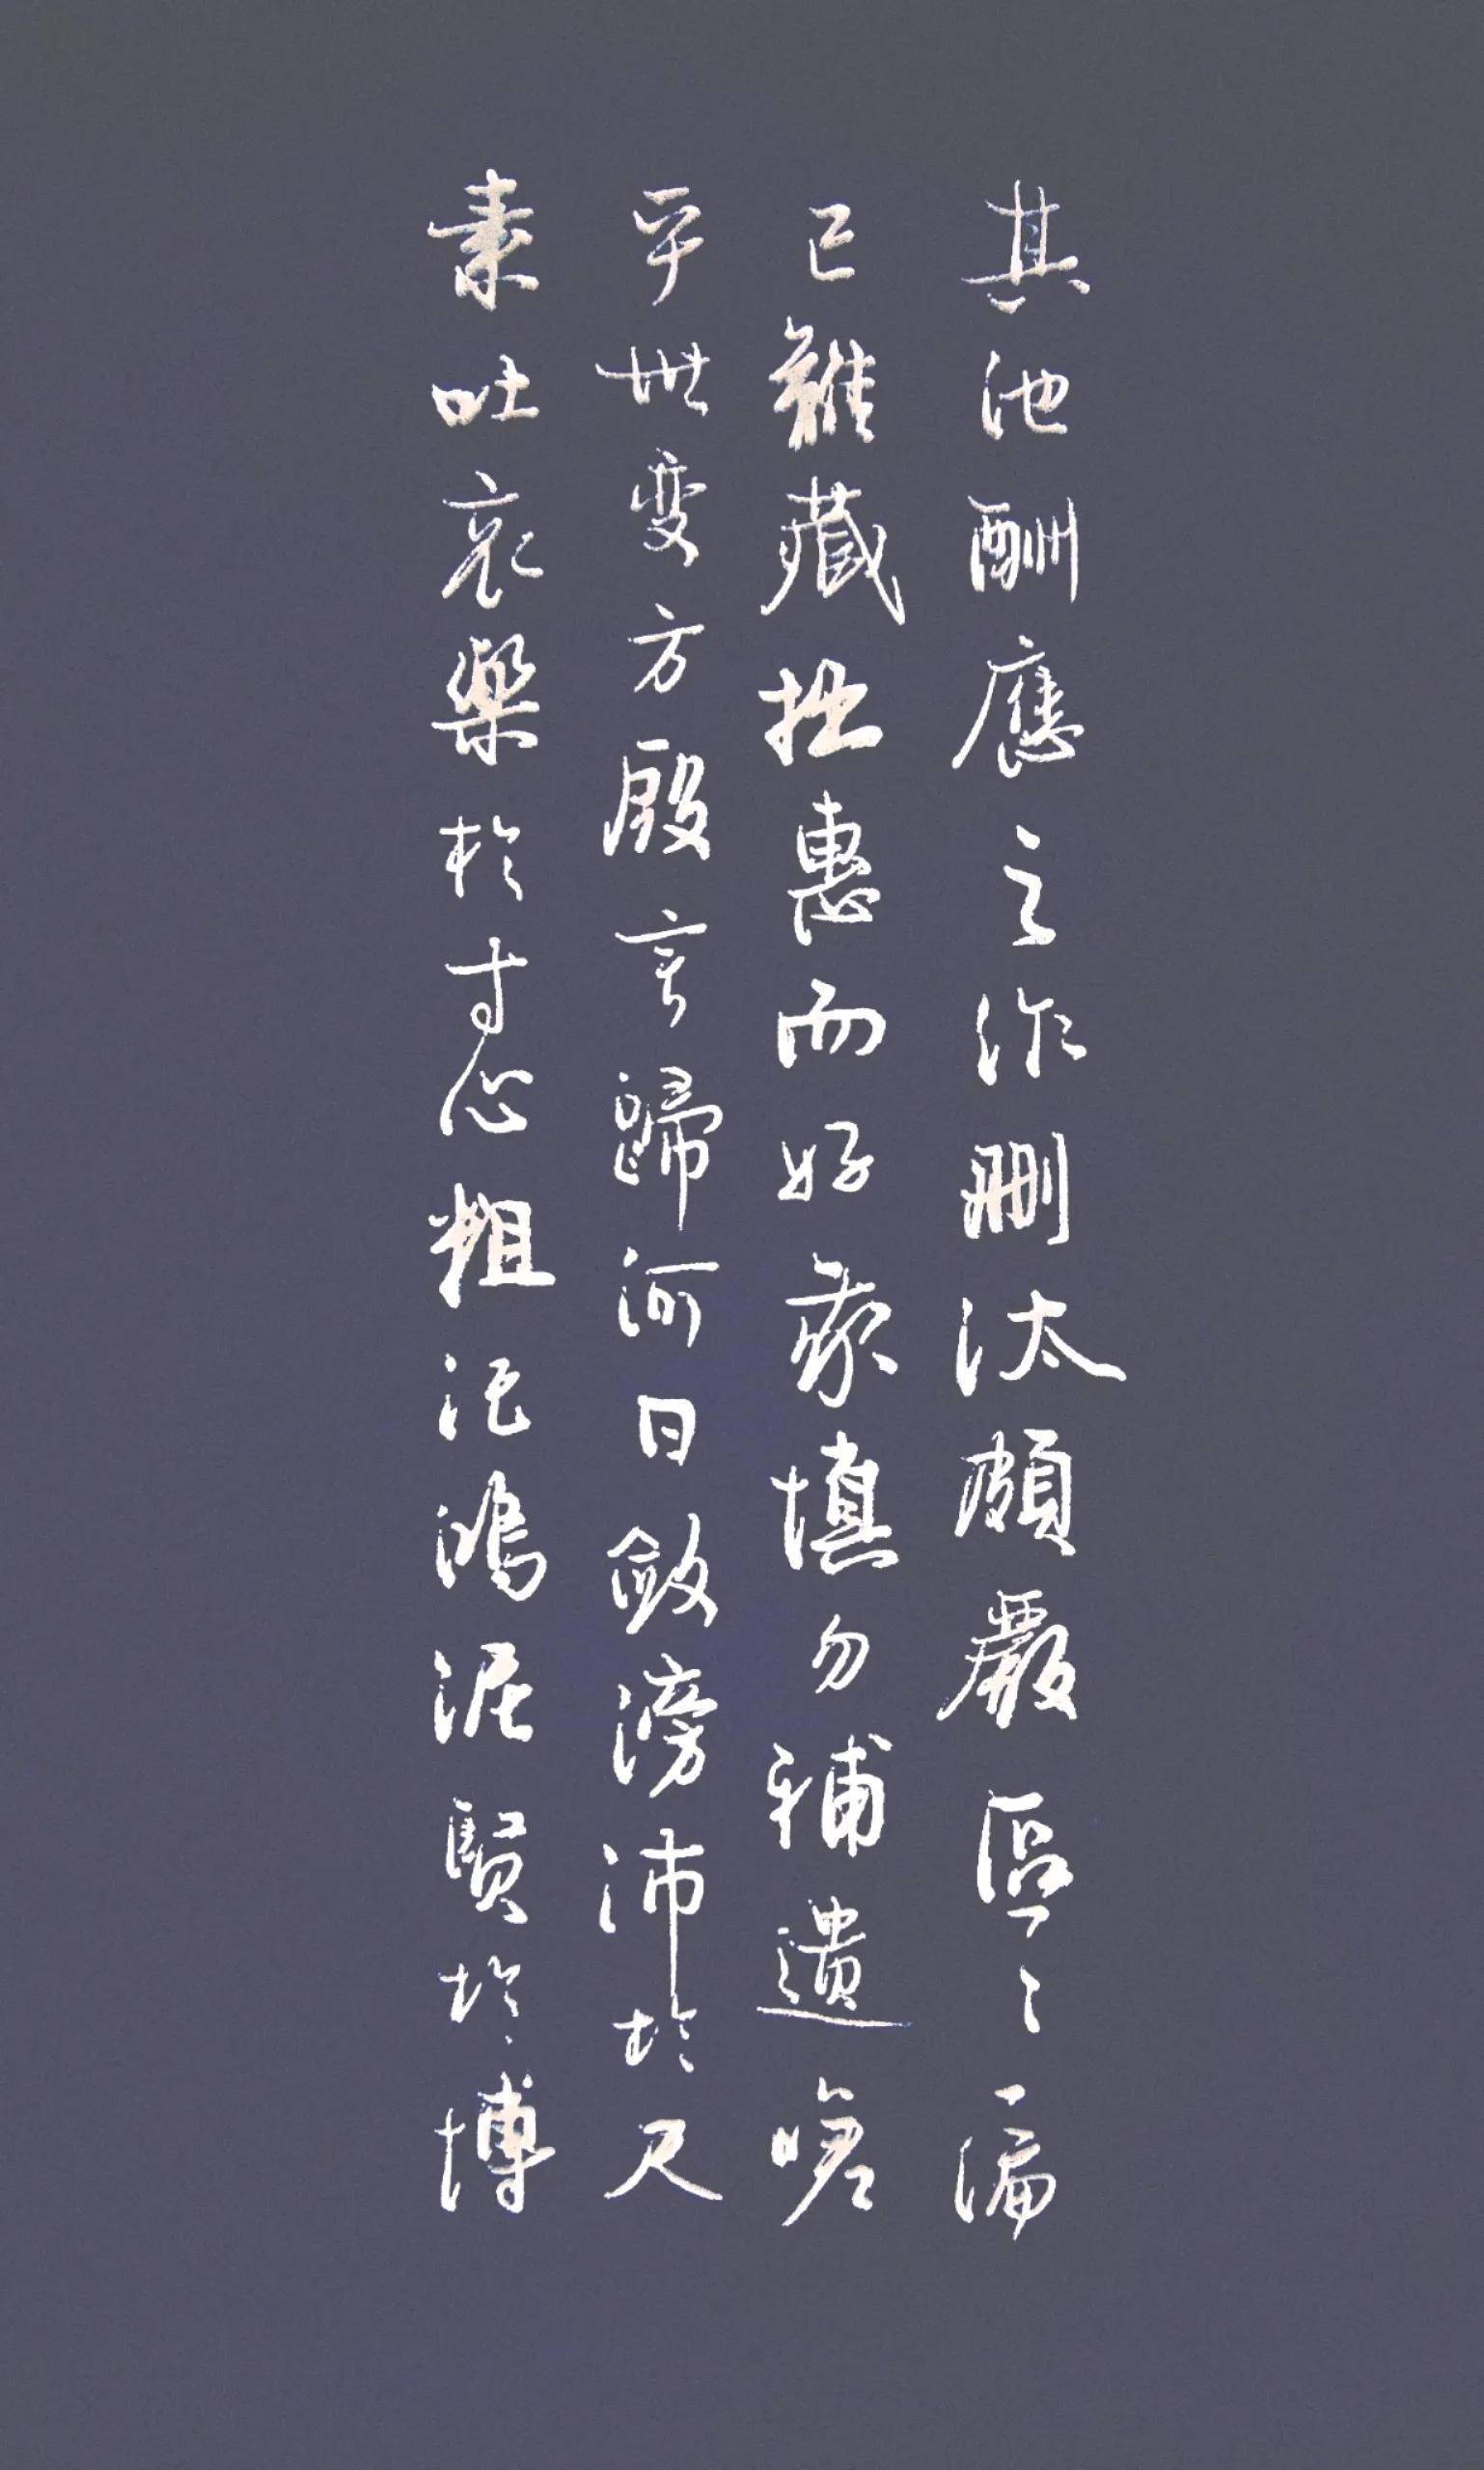 其他酬應之作刪汰頗嚴區區一編
已難藏拙惠而好我慎勿補遺嗟
乎世變方殷言歸河日斂滂沛於尺
素吐哀樂於寸心粗記鴻泥賢於博